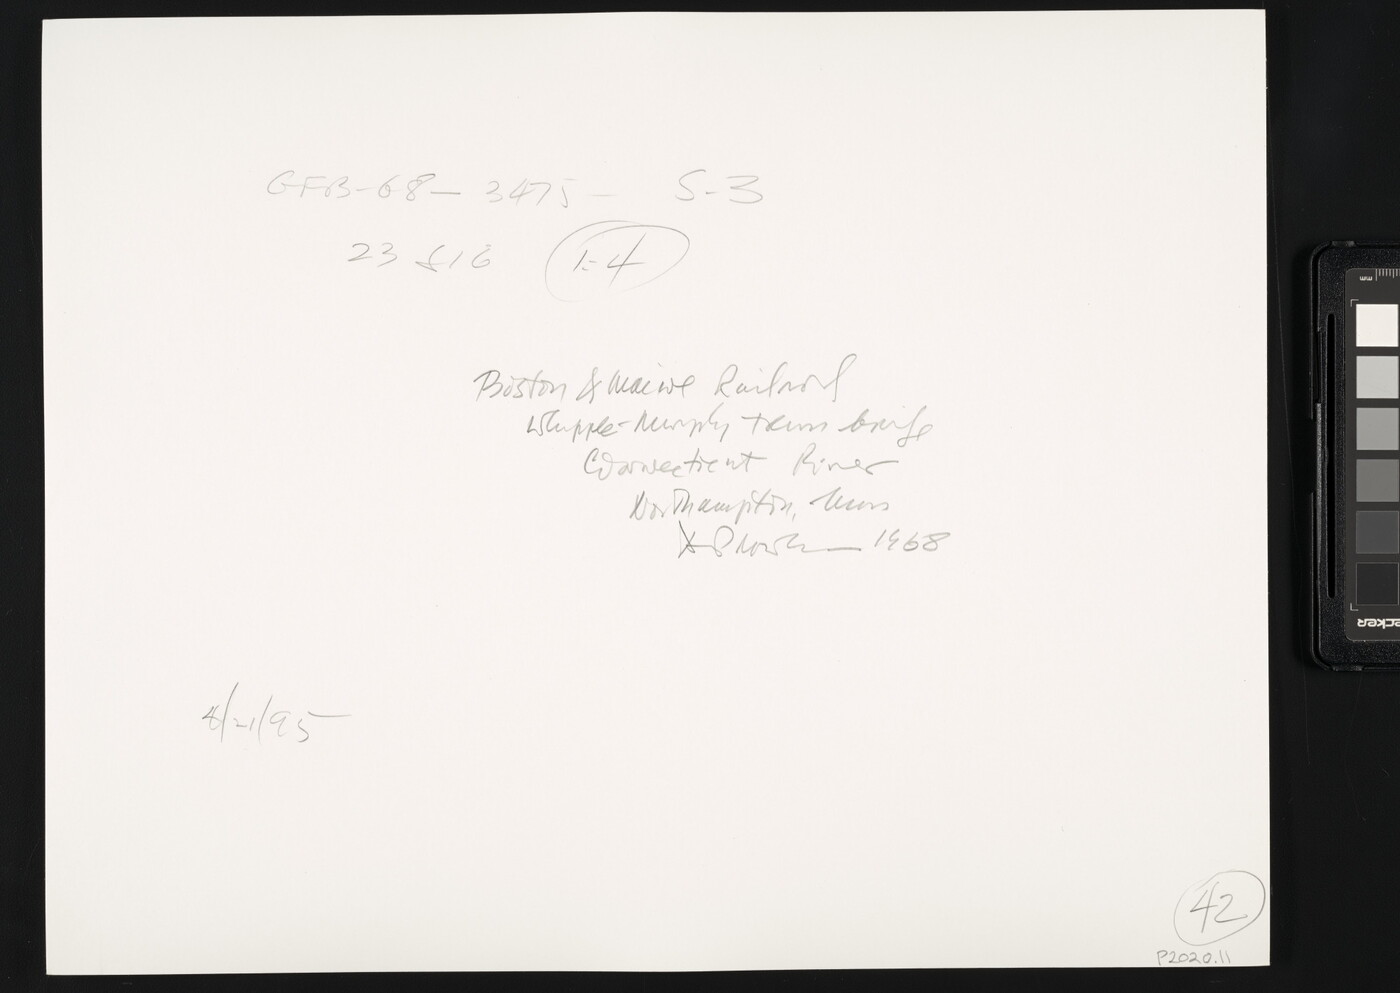 GFB-68-3475- S-3
23 f16 1:4
Boston & Maine Railroad
Whipple-Murphy truss bridge
Connecticut River
Northampton, Mass
1968
8/21/95
42
P2020.11
mm